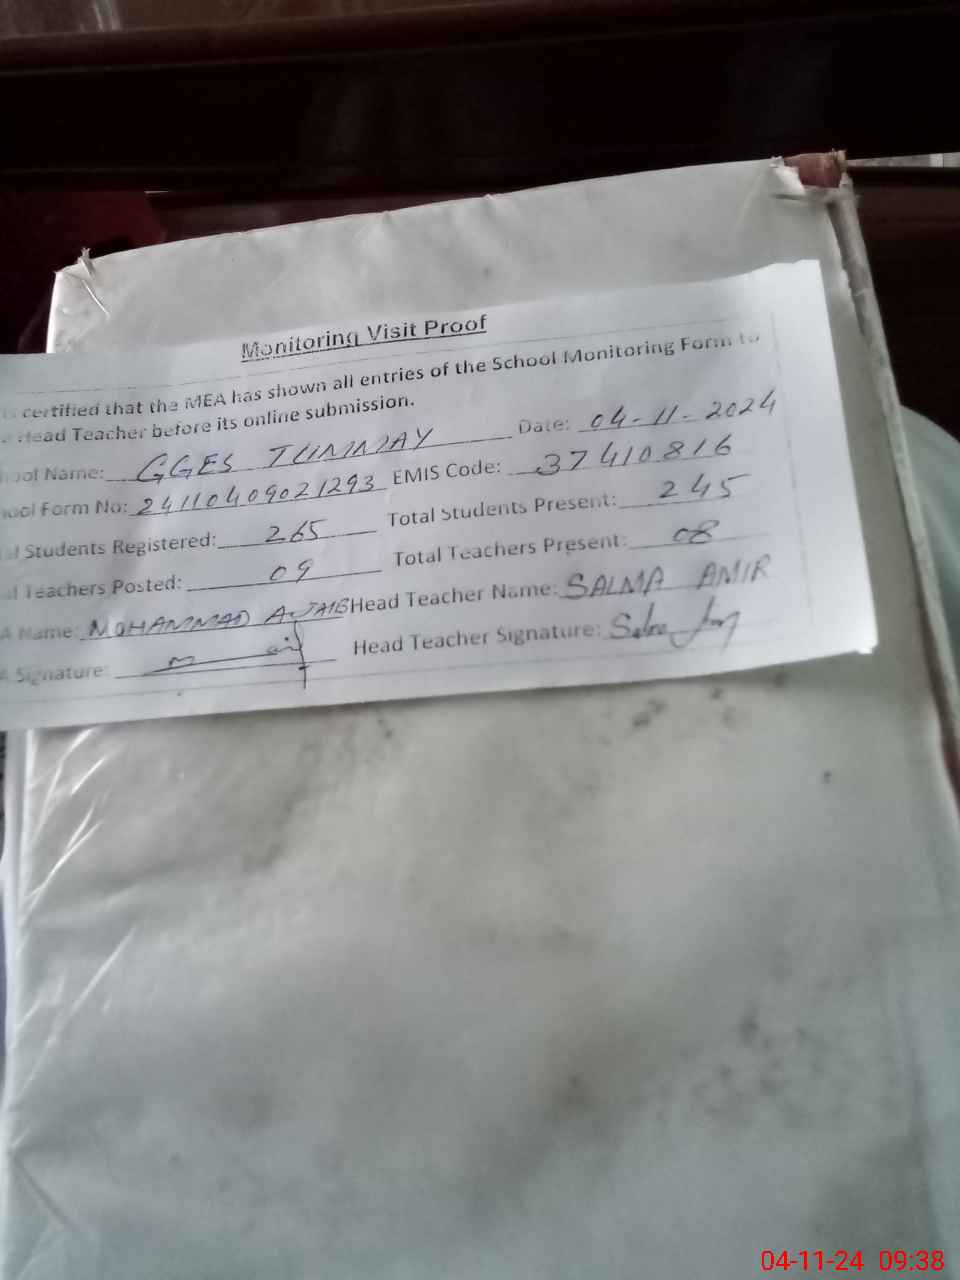 Monitoring Visit Proof
certified that the MEA has shown all entries of the School Monitoring Form to
Head Teacher before its online submission.
School Name: GGES TUMMAY Date: 04-11-2024
School Form No: 24110409021293 EMIS Code: 37410816
Students Registered: 265 Total Students Present: 245
Teachers Posted: 09 Total Teachers Present: 08
A Name: MOHAMMAD AJAIB Head Teacher Name: SALMA AMIR
A Signature: Head Teacher Signature: Salma
04-11-24 09:38